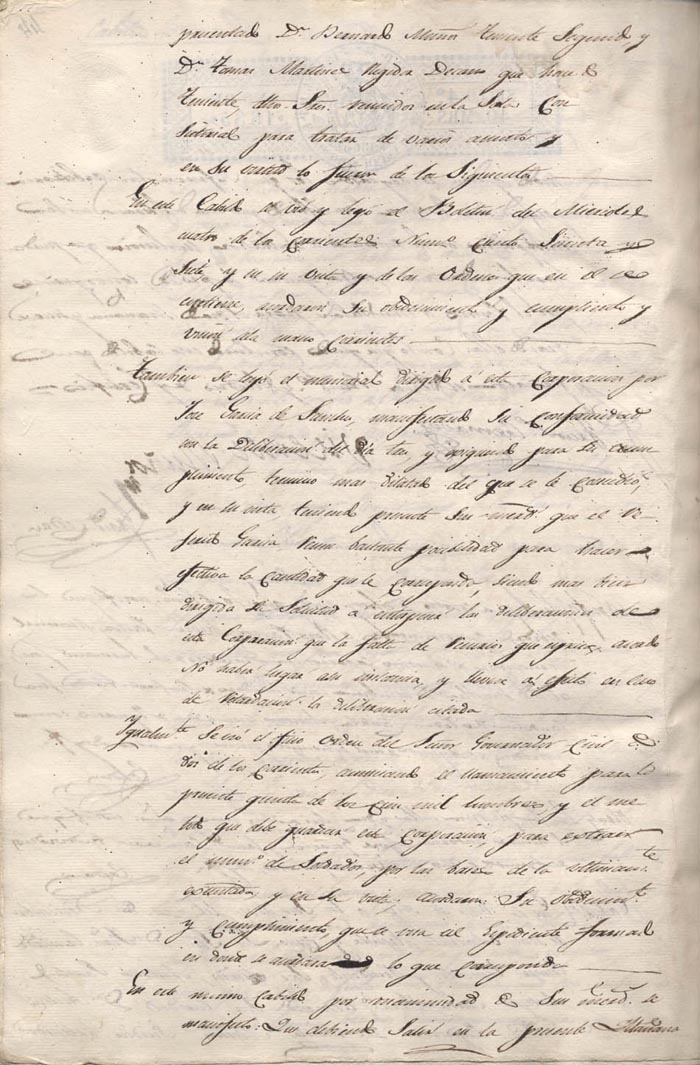 presentado Dn. Bernardo Muñoz Teniente Segundo y
Dn. Tomas Martinez Regidor Decano que hace de
Teniente, dhos. Sres. reunidos en la Sala Con
sistorial para tratar de varios asuntos y
en su virtud lo fueron de los Siguientes
En este Cabdo. se vió y leyó el Boletin del Miercoles
cuatro de los Corrientes Numo. Ciento Sesenta y
Siete, y en su vista y de las Ordenes que en él se
contienen, acordaron su obedecimiento y cumplimiento y
Tambien se leyó el memorial dirigido á esta Corporacion por
José Garcia de Sancho, manifestando su conformidad
con la Deliberacion del dia tres, y exigiendo para su cum
plimiento, termino mas dilatado del que se le concedió,
y en su vista teniendo presente Sus mercds. que el re
ferido Garcia reune bastante posibilidad para hacer
efectiva la Cantidad que le corresponde, siendo mas bien
dirigida su Solicitud á entorpecer la deliberacion de
esta Corporacion que la falta de recursos que
No haber lugar á su instancia, y llevar á efecto en caso
de retardacion la deliberacion citada
Igualmte. se vió el orden del Señor Governador Civil de
dos de los corrientes, anunciando el llamamiento para la
presente quinta de los cien mil hombres y el me
todo que debe guardar esta corporacion, para extraer
el numo. de Soldados, por las bases de la
y en su vista, acordaron su obedecimto.
y cumplimiento, que se una al Espediente formado
en donde se acordará lo que corresponda
En este mismo Cabdo. por unanimidad de Sus mercds. se
manifestó: Que debiendo Salir en la presente Mañana